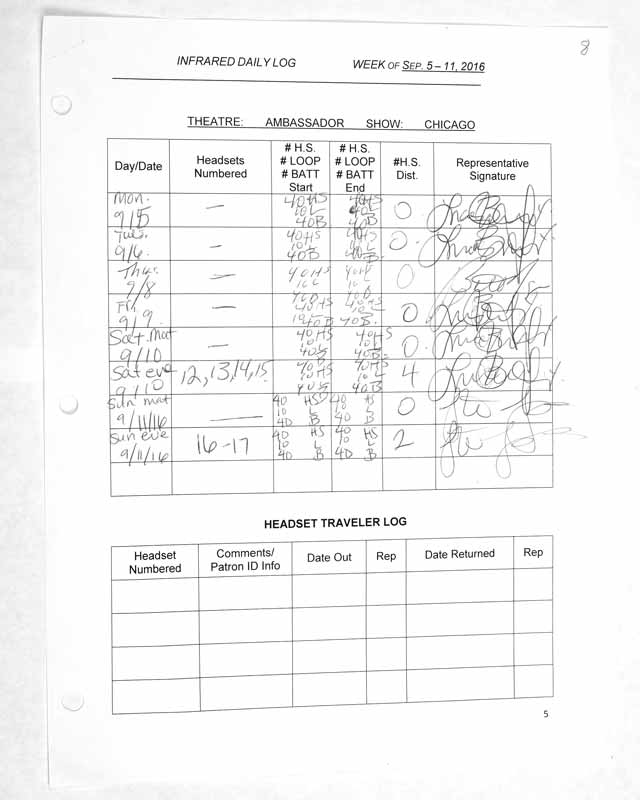 8
INFRARED DAILY LOG WEEK OF SEP. 5 – 11, 2016
THEATRE: AMBASSADOR SHOW: CHICAGO
Day/Date
Headsets
Numbered
# H.S.
# LOOP
# BATT
Start
# H.S.
# LOOP
# BATT
End
#H.S.
Dist.
Representative
Signature
Mon.
9/5
—
40HS
10L
40B
40HS
40B
0
Tues.
9/6
—
40HS
10L
40B
40HS
10L
40B
0
Thur.
9/8
—
40HS
10L
40B
40HS
10L
0
Fri.
9/9
—
40HS
10L
40B
40HS
10L
40B
0
Sat. mat
9/10
—
40HS
10L
40HS
10L
40B
0
Sat eve
9/10
12, 13, 14, 15
40HS
10L
40HS
10L
40B
4
Sun mat
9/11/16
—
40 HS
10 L
40 B
40 HS
10 L
40 B
0
Sun eve
9/11/16
16-17
40 HS
10 L
40 B
40 HS
10 L
40 B
2
HEADSET TRAVELER LOG
Headset
Numbered
Comments/
Patron ID Info
Date Out
Rep
Date Returned
Rep
5